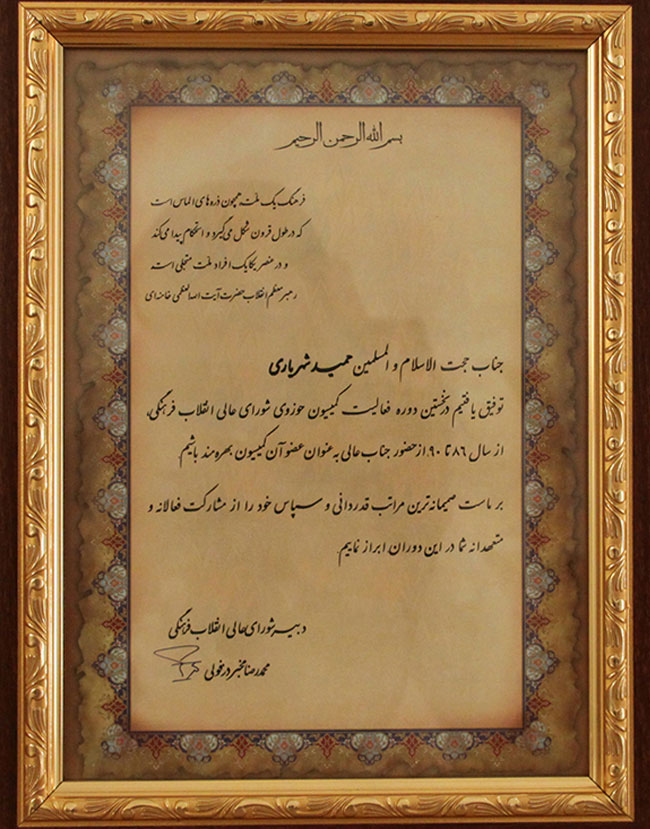 بسم الله الرحمن الرحیم
فرهنگ یک ملت، همچون ذره های الماس است
که در طول قرون شکل می گیرد و استحکام پیدا می کند
و در عنصر یکایک افراد ملت متجلی است
رهبر معظم انقلاب حضرت آیت الله العظمی خامنه ای
جناب حجت الاسلام و المسلمین حمید شهریاری
توفیق یافتیم در نخستین دوره فعالیت کمیسیون حوزوی شورای عالی انقلاب فرهنگی،
از سال ۸۶ تا ۹۰ از حضور جناب عالی به عنوان عضو آن کمیسیون بهره مند باشیم
بر ماست صمیمانه ترین مراتب قدردانی و سپاس خود را از مشارکت فعالانه و
متعهدانه شما در این دوران ابراز نماییم.
دبیر شورای عالی انقلاب فرهنگی
محمدرضا مخبر دزفولی